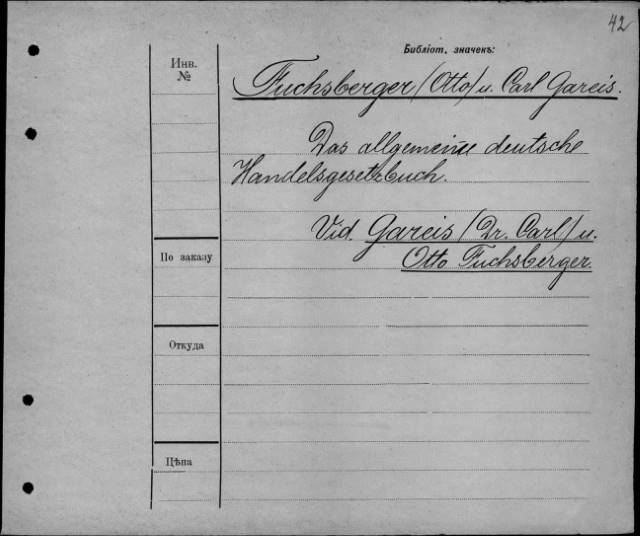 42
Библіот. значекъ:
Инв.
№
Fuchsberger (Otto) u. Carl Gareis.
Das allgemeine deutsche
Handelsgesetzbuch.
Vid. Gareis (Dr. Carl) u.
Otto Fuchsberger.
По заказу
Откуда
Цѣна